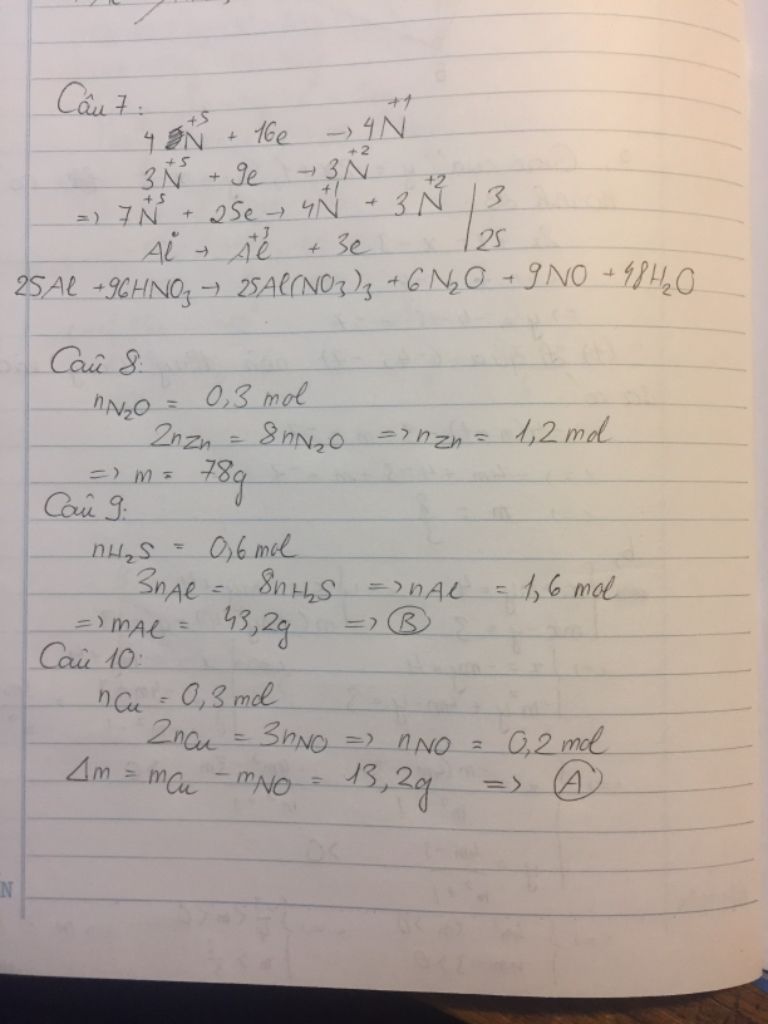 Câu 7:
4N⁺⁵ + 16e → 4N⁺¹
3N⁺⁵ + 9e → 3N⁺²
=> 7N⁺⁵ + 25e → 4N⁺¹ + 3N⁺² | 3
Al⁰ → Al⁺³ + 3e | 25
25Al + 96HNO₃ → 25Al(NO₃)₃ + 6N₂O + 9NO + 48H₂O
Câu 8:
nN₂O = 0,3 mol
2nZn = 8nN₂O => nZn = 1,2 mol
=> m = 78g
Câu 9:
nH₂S = 0,6 mol
3nAl = 8nH₂S => nAl = 1,6 mol
=> mAl = 43,2g => B
Câu 10:
nCu = 0,3 mol
2nCu = 3nNO => nNO = 0,2 mol
Δm = mCu - mNO = 13,2g => A
N